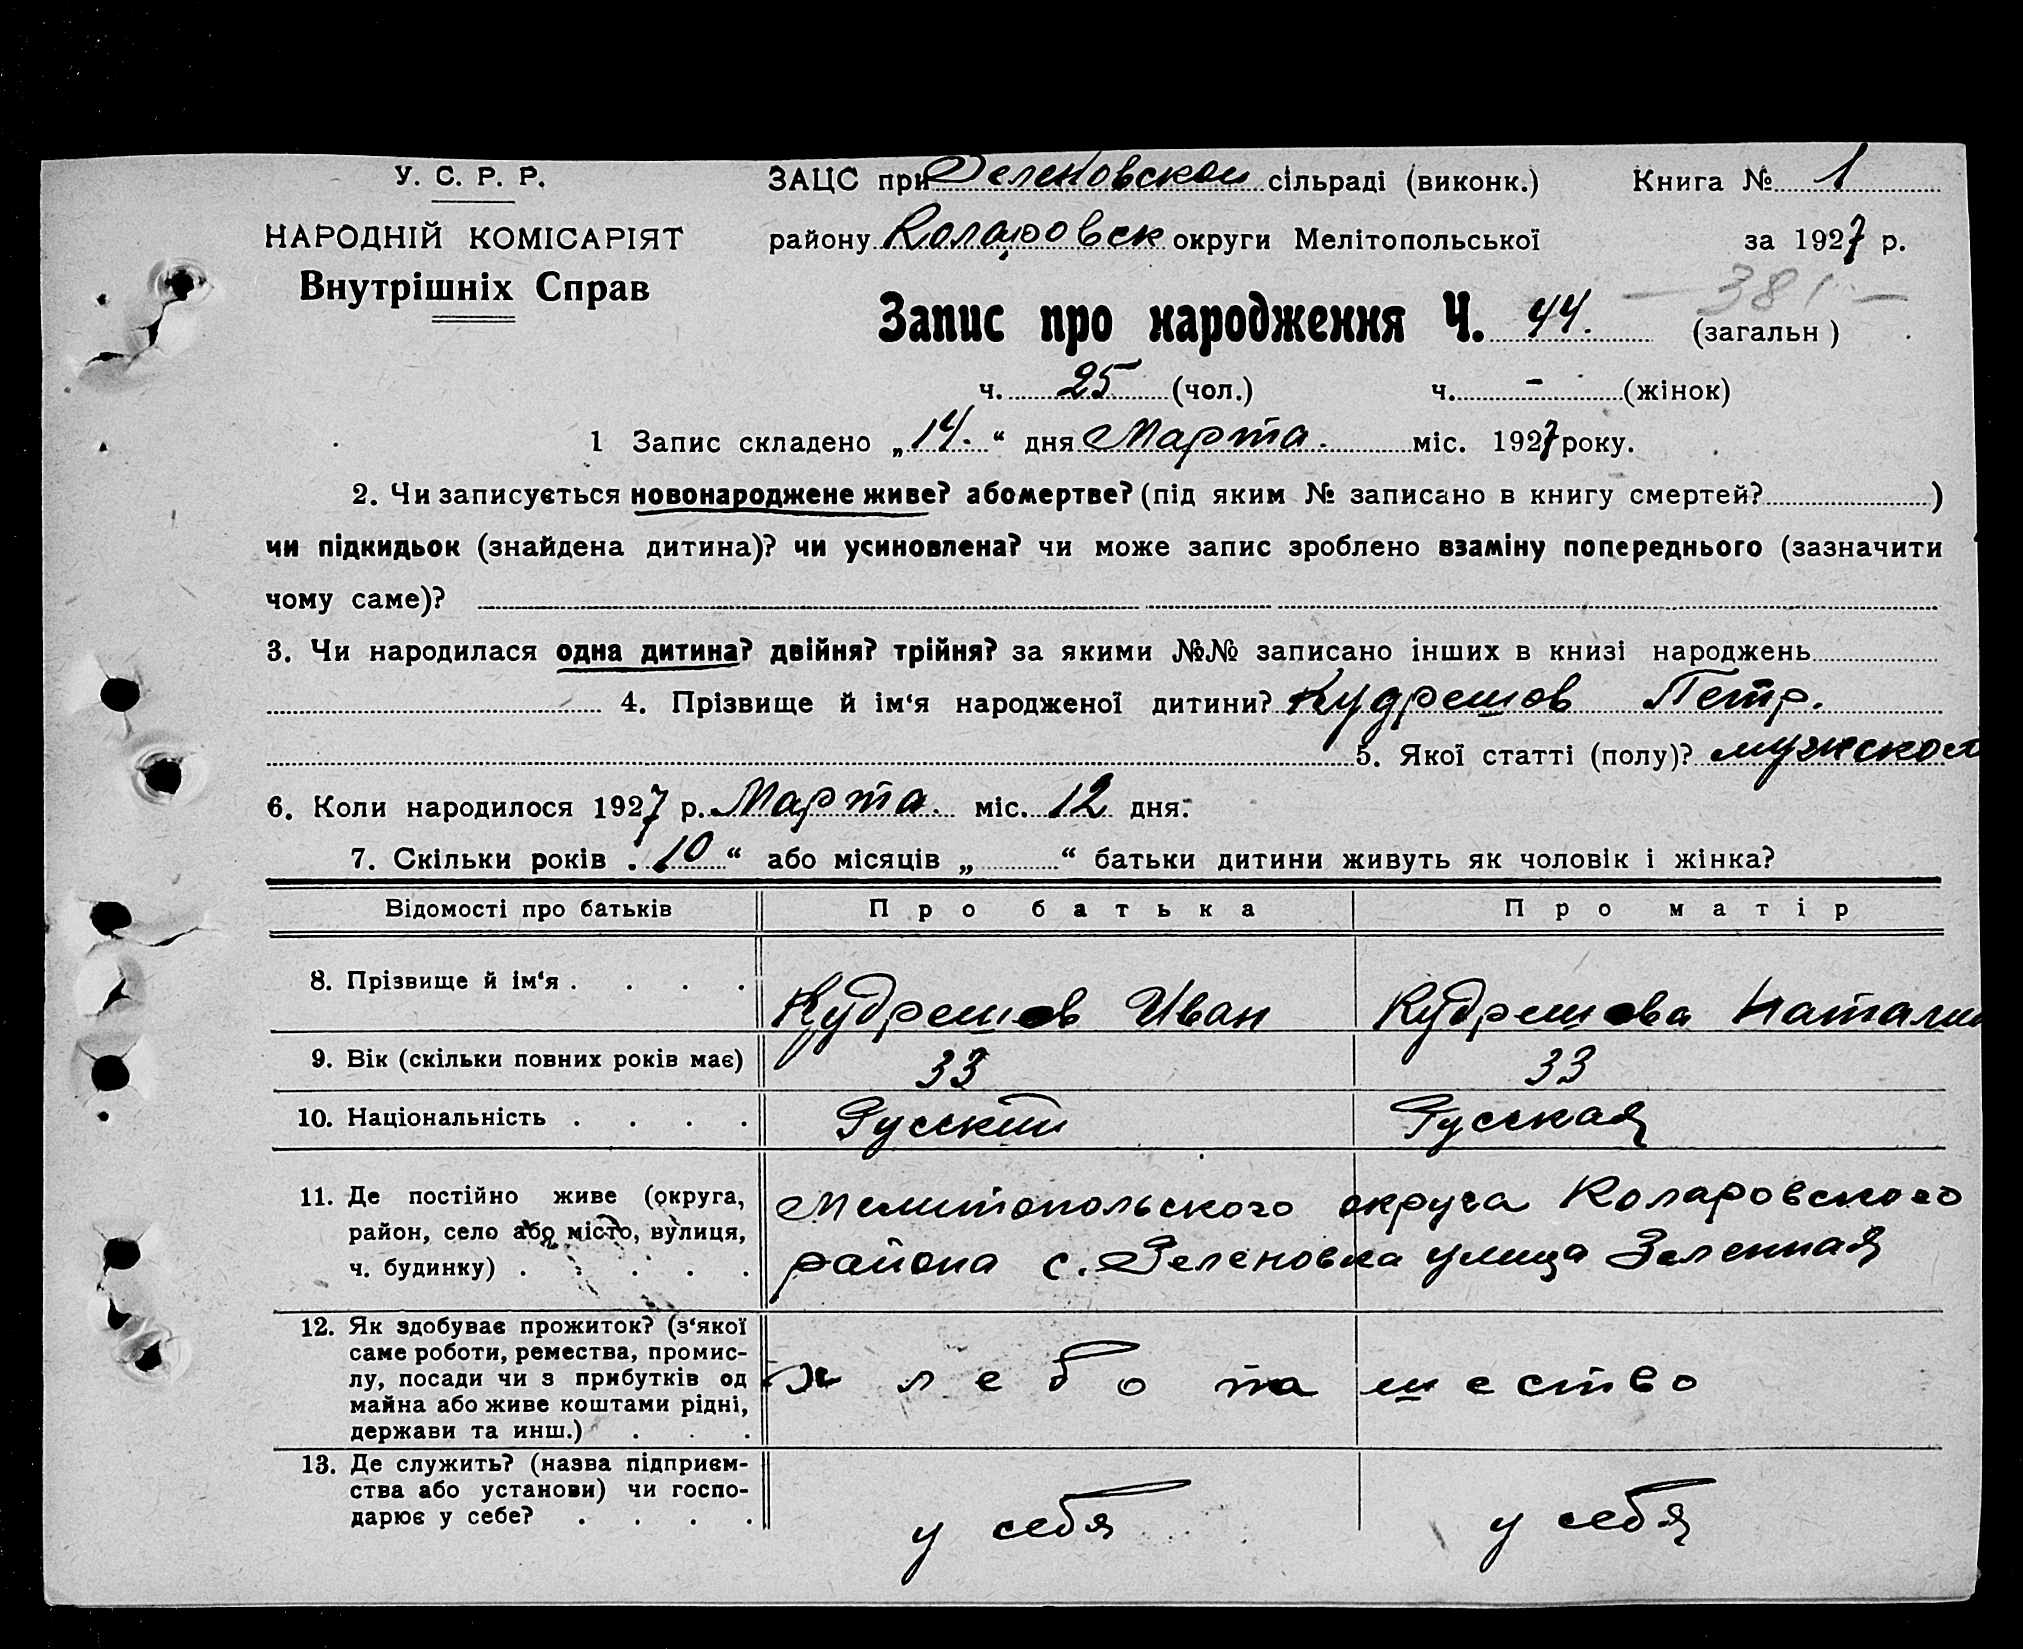 У. С. Р. Р.
НАРОДНІЙ КОМІСАРІЯТ
Внутрішніх Справ
ЗАЦС при Зеленовском сільраді (виконк.) Книга № 1
району Коларовск округи Мелітопольської за 1927 р.
— 381 —
Запис про народження Ч. 44. (загальн)
ч. 25 (чол.) ч. - (жінок)
1 Запис складено „14.“ дня Марта. міс. 1927 року.
2. Чи записується новонароджене живе? або мертве? (під яким № записано в книгу смертей? )
чи підкидьок (знайдена дитина)? чи усиновлена? чи може запис зроблено взаміну попереднього (зазначити
чому саме)?
3. Чи народилася одна дитина? двійня? трійня? за якими №№ записано інших в книзі народжень
4. Прізвище й ім‘я народженої дитини? Кудрешов Петр.
5. Якої статті (полу)? мужской
6. Коли народилося 1927 р. Марта. міс. 12 дня.
7. Скільки років „10“ або місяців „ “ батьки дитини живуть як чоловік і жінка?
Відомості про батьків Про батька Про матір
8. Прізвище й ім‘я . . . . Кудрешов Иван Кудрешова Наталия
9. Вік (скільки повних років має) 33 33
10. Національність . . . . Русский Русская
11. Де постійно живе (округа, район, село або місто, вулиця, ч. будинку) . . . . .
Мелитопольского округа Коларовского
района с. Зеленовка улица Зеленная
12. Як здобуває прожиток? (з‘якої
саме роботи, ремества, промис-
лу, посади чи з прибутків од
майна або живе коштами рідні,
держави та инш.) . . .
хлебопашество
13. Де служить? (назва підприєм-
ства або установи) чи госпо-
дарює у себе? . . . .
у себя у себя